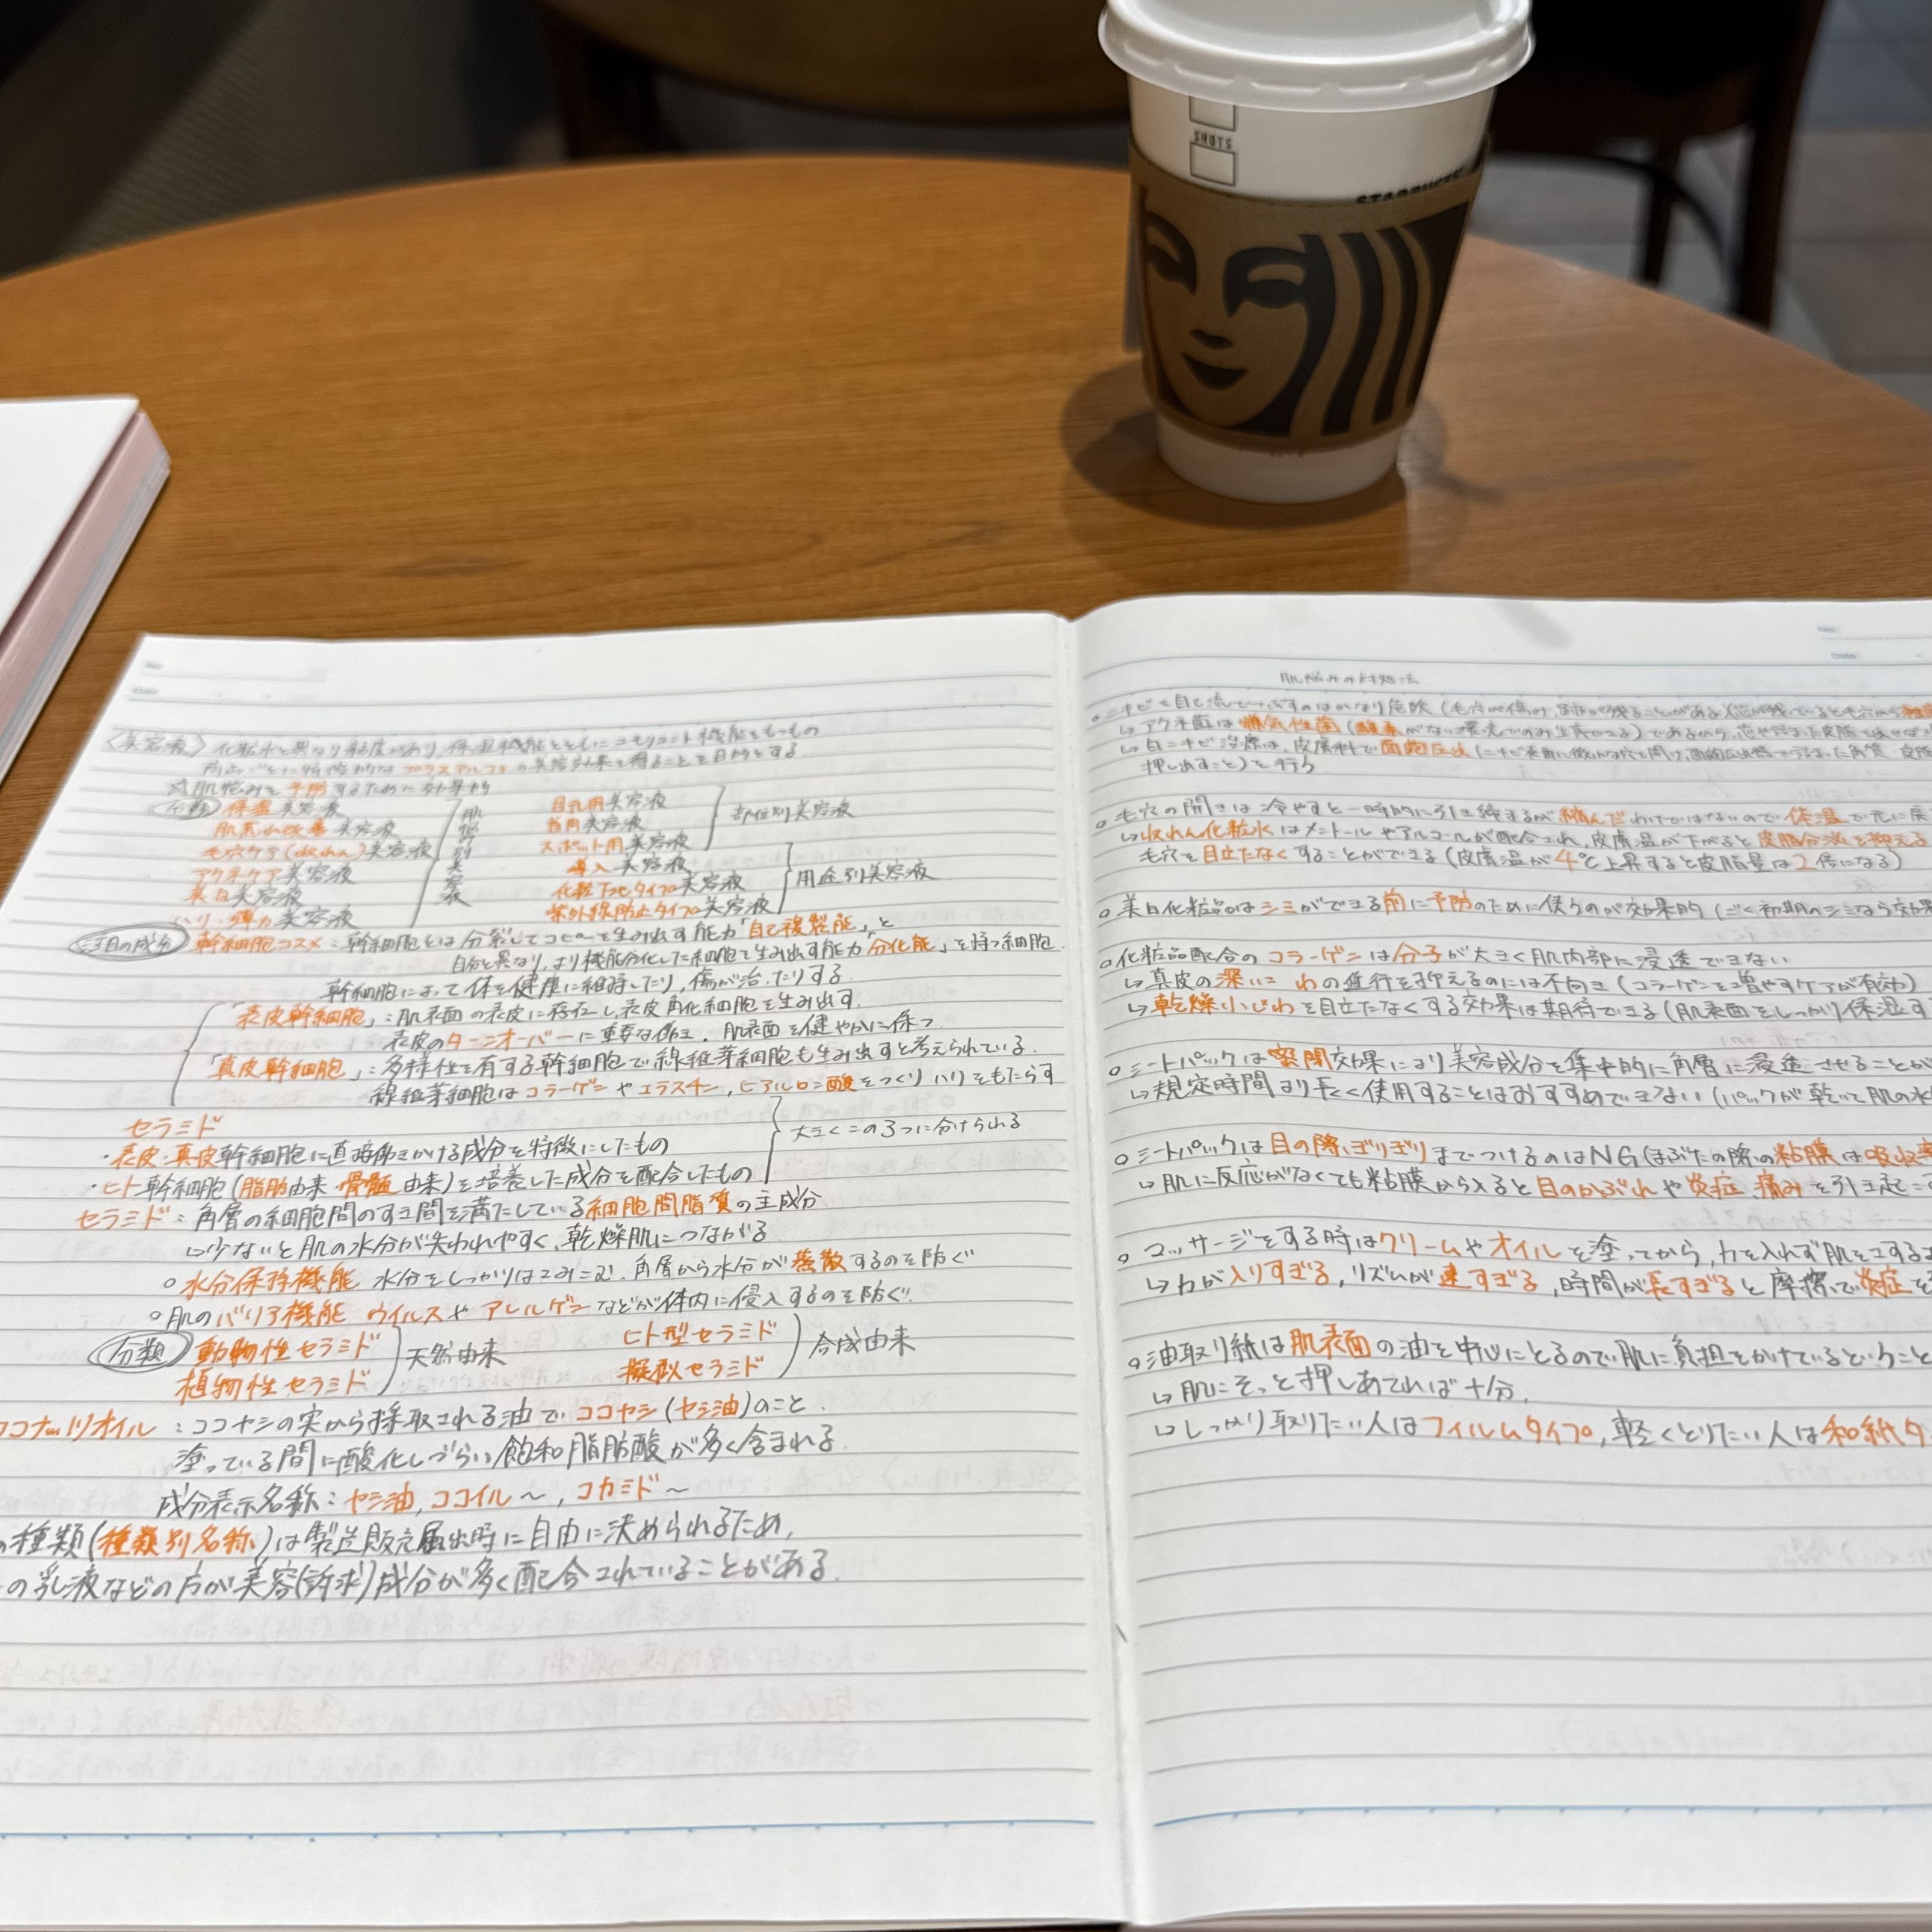 SHOTS
STARBUCKS
<美容液> 化粧水と異なり粘度があり、保湿機能とともにエモリエント機能をもつもの
商品ごとに特徴的なプラスアルファの美容効果を得ることを目的とする
☆肌悩みを予防するために効果的
分類 保湿美容液
肌荒れ改善美容液
毛穴ケア(収れん)美容液
アクネケア美容液
美白美容液
ハリ・弾力美容液
目元用美容液
首用美容液
スポット用美容液
部位別美容液
導入美容液
化粧下地タイプ美容液
紫外線防止タイプ美容液
用途別美容液
注目の成分 幹細胞コスメ:幹細胞とは分裂してコピーを生み出す能力「自己複製能」と
自分と異なり、より機能分化した細胞を生み出す能力「分化能」を持つ細胞
幹細胞によって体を健康に維持したり、傷が治ったりする
「表皮幹細胞」:肌表面の表皮に存在し、表皮角化細胞を生み出す.
表皮のターンオーバーに重要な働き.肌表面を健やかに保つ
「真皮幹細胞」:多様性を有する幹細胞で線維芽細胞も生み出すと考えられている.
線維芽細胞はコラーゲンやエラスチン,ヒアルロン酸をつくりハリをもたらす
セラミド
・表皮・真皮幹細胞に直接働きかける成分を特徴にしたもの
・ヒト幹細胞(脂肪由来・骨髄由来)を培養した成分を配合したもの
大きくこの3つに分けられる
セラミド:角層の細胞間のすき間を満たしている細胞間脂質の主成分
↳少ないと肌の水分が失われやすく、乾燥肌につながる
○水分保持機能 水分をしっかりはさみこむ.角層から水分が蒸散するのを防ぐ
○肌のバリア機能 ウイルスやアレルゲンなどが体内に侵入するのを防ぐ
分類 動物性セラミド
植物性セラミド
天然由来
ヒト型セラミド
擬似セラミド
合成由来
ココナッツオイル:ココヤシの実から採取される油でココヤシ(ヤシ油)のこと.
塗っている間に酸化しづらい飽和脂肪酸が多く含まれる
成分表示名称:ヤシ油,ココイル〜,コカミド〜
の種類(種類別名称)は製造販売届出時に自由に決められるため,
の乳液などの方が美容(訴求)成分が多く配合されていることがある.
肌悩みの対処法
○ニキビを自己流でつぶすのはかなり危険
↳アクネ菌は嫌気性菌
↳白ニキビ治療は、皮膚科で面皰圧出
押し出すこと)を行う
○毛穴の開きは冷やすと一時的に引き締まるが縮んだわけではないので体温で元に戻
↳収れん化粧水はメントールやアルコールが配合され,皮膚温が下がると皮脂分泌を抑える
毛穴を目立たなくすることができる(皮膚温が4℃上昇すると皮脂量は2倍になる)
○美白化粧品はシミができる前に予防のために使うのが効果的(ごく初期のシミなら効果
○化粧品配合のコラーゲンは分子が大きく肌内部に浸透できない
↳真皮の深いしわの進行を抑えるのには不向き(コラーゲンを増やすケアが有効)
↳乾燥小じわを目立たなくする効果は期待できる(肌表面をしっかり保湿す
○シートパックは密閉効果により美容成分を集中的に角層に浸透させることが
↳規定時間より長く使用することはおすすめできない(パックが乾いて肌の水
○シートパックは目の際ぎりぎりまでつけるのはNG(まぶたの際の粘膜は吸収率
↳肌に反応がなくても粘膜から入ると目のかぶれや炎症,痛みを引き起こす
○マッサージをする時はクリームやオイルを塗ってから,力を入れず肌をさする
↳力が入りすぎる,リズムが速すぎる,時間が長すぎると摩擦で炎症を
○油取り紙は肌表面の油を中心にとるので,肌に負担をかけているということ
↳肌にそっと押しあてれば十分.
↳しっかり取りたい人はフィルムタイプ,軽くとりたい人は和紙タ